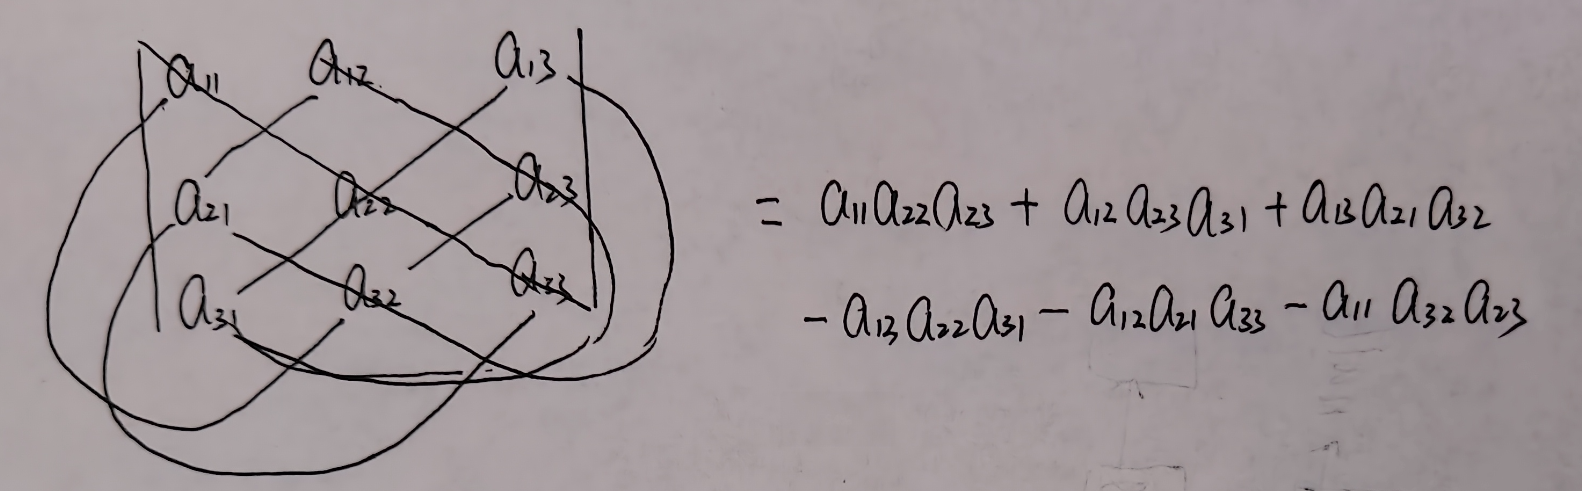 a₁₁ a₁₂ a₁₃
a₂₁ a₂₂ a₂₃
a₃₁ a₃₂ a₃₃
= a₁₁a₂₂a₂₃ + a₁₂a₂₃a₃₁ + a₁₃a₂₁a₃₂
- a₁₃a₂₂a₃₁ - a₁₂a₂₁a₃₃ - a₁₁a₃₂a₂₃